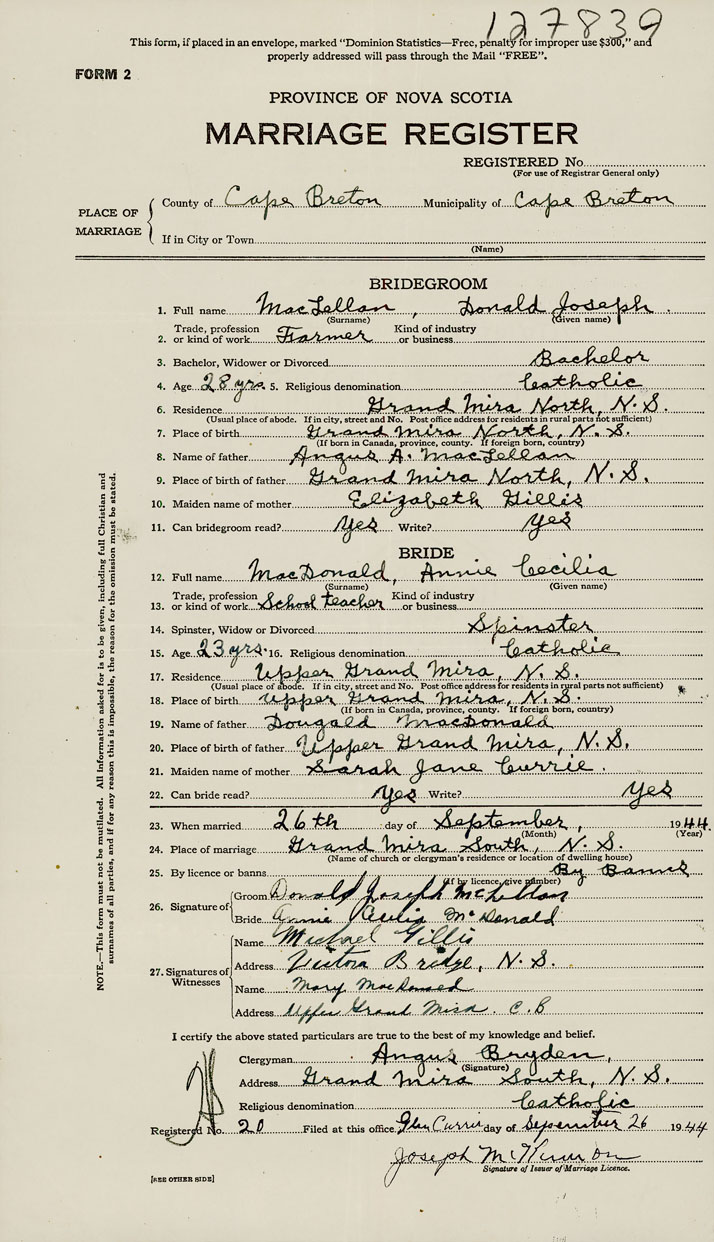 127839
This form, if placed in an envelope, marked "Dominion Statistics—Free, penalty for improper use $300," and
properly addressed will pass through the Mail "FREE".
FORM 2
PROVINCE OF NOVA SCOTIA
MARRIAGE REGISTER
REGISTERED No.
(For use of Registrar General only)
PLACE OF MARRIAGE
County of Cape Breton Municipality of Cape Breton
If in City or Town
(Name)
BRIDEGROOM
1. Full name MacLellan, Donald Joseph.
(Surname) (Given name)
2. Trade, profession or kind of work Farmer Kind of industry or business
3. Bachelor, Widower or Divorced Bachelor
4. Age 28 yrs. 5. Religious denomination Catholic
6. Residence Grand Mira North, N.S.
(Usual place of abode. If in city, street and No. Post office address for residents in rural parts not sufficient)
7. Place of birth Grand Mira North, N.S.
(If born in Canada, province, county. If foreign born, country)
8. Name of father Angus A. MacLellan
9. Place of birth of father Grand Mira North, N.S.
10. Maiden name of mother Elizabeth Gillis
11. Can bridegroom read? Yes Write? Yes
BRIDE
12. Full name MacDonald, Annie Cecilia
(Surname) (Given name)
13. Trade, profession or kind of work School teacher Kind of industry or business
14. Spinster, Widow or Divorced Spinster
15. Age 23 yrs. 16. Religious denomination Catholic
17. Residence Upper Grand Mira, N.S.
(Usual place of abode. If in city, street and No. Post office address for residents in rural parts not sufficient)
18. Place of birth Upper Grand Mira, N.S.
(If born in Canada, province, county. If foreign born, country)
19. Name of father Dougald MacDonald
20. Place of birth of father Upper Grand Mira, N.S.
21. Maiden name of mother Sarah Jane Currie.
22. Can bride read? Yes Write? Yes
23. When married 26th day of September, 1944.
(Month) (Year)
24. Place of marriage Grand Mira South, N.S.
(Name of church or clergyman's residence or location of dwelling house)
25. By licence or banns By Banns
(If by licence, give number)
26. Signature of
Groom Donald Joseph McLellan
Bride Annie Cecilia McDonald
27. Signatures of Witnesses
Name Michael Gillis
Address Victoria Bridge, N.S.
Name Mary MacDonald
Address Upper Grand Mira. C.B
I certify the above stated particulars are true to the best of my knowledge and belief.
Clergyman Angus Bryden,
(Signature)
Address Grand Mira South, N.S.
Religious denomination Catholic
Registered No. 20 Filed at this office Glen Currie day of September 26 1944
Joseph
Signature of Issuer of Marriage Licence.
[SEE OTHER SIDE]
NOTE.—This form must not be mutilated. All information asked for is to be given, including full Christian and
surnames of all parties, and if for any reason this is impossible, the reason for the omission must be stated.